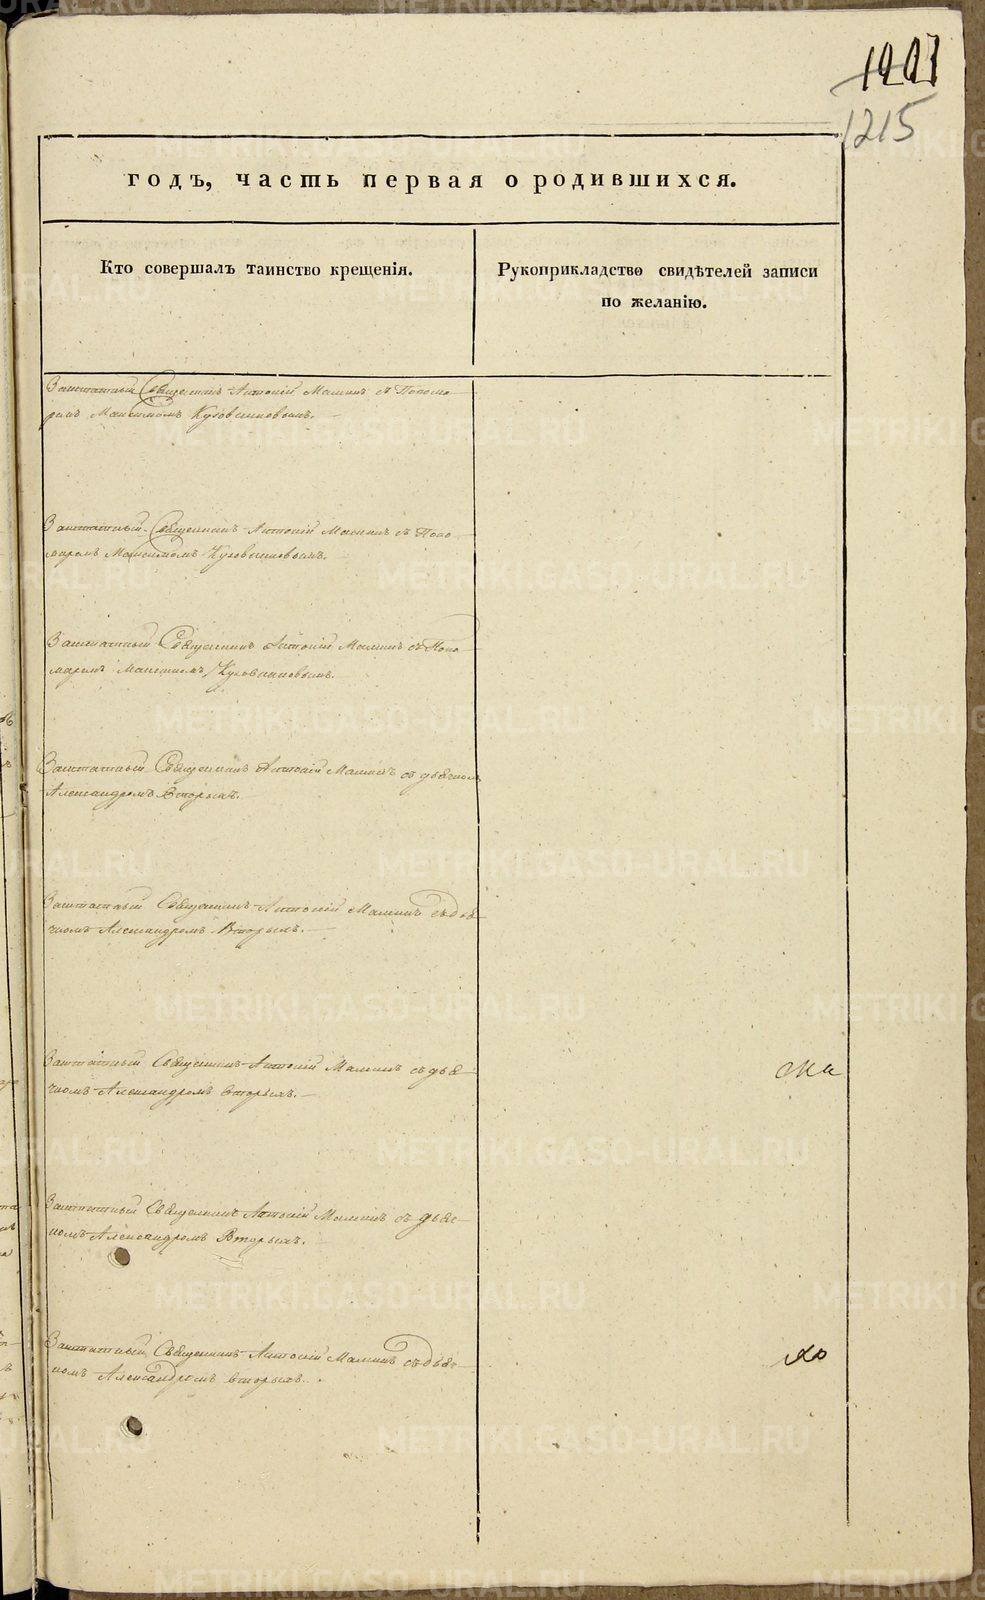 1215
годъ, часть первая о родившихся.
Кто совершалъ таинство крещенія.
Рукоприкладство свидѣтелей записи
по желанію.
Заштатный Священникъ Антоній Маминъ съ Поно-
маремъ
Заштатный Священникъ Антоній Маминъ съ Поно-
маремъ
Заштатный Священникъ Антоній Маминъ съ Поно-
маремъ
Заштатный Священникъ Антоній Маминъ съ дьячкомъ
Александромъ Вторыхъ.
Заштатный Священникъ Антоній Маминъ съ дья-
чкомъ Александромъ Вторыхъ.
Заштатный Священникъ Антоній Маминъ съ дья-
чкомъ Александромъ Вторыхъ.
Заштатный Священникъ Антоній Маминъ съ дьяч-
комъ Александромъ Вторыхъ.
Заштатный Священникъ Антоній Маминъ съ дьяч-
комъ Александромъ Вторыхъ.
METRIKI.GASO-URAL.RU